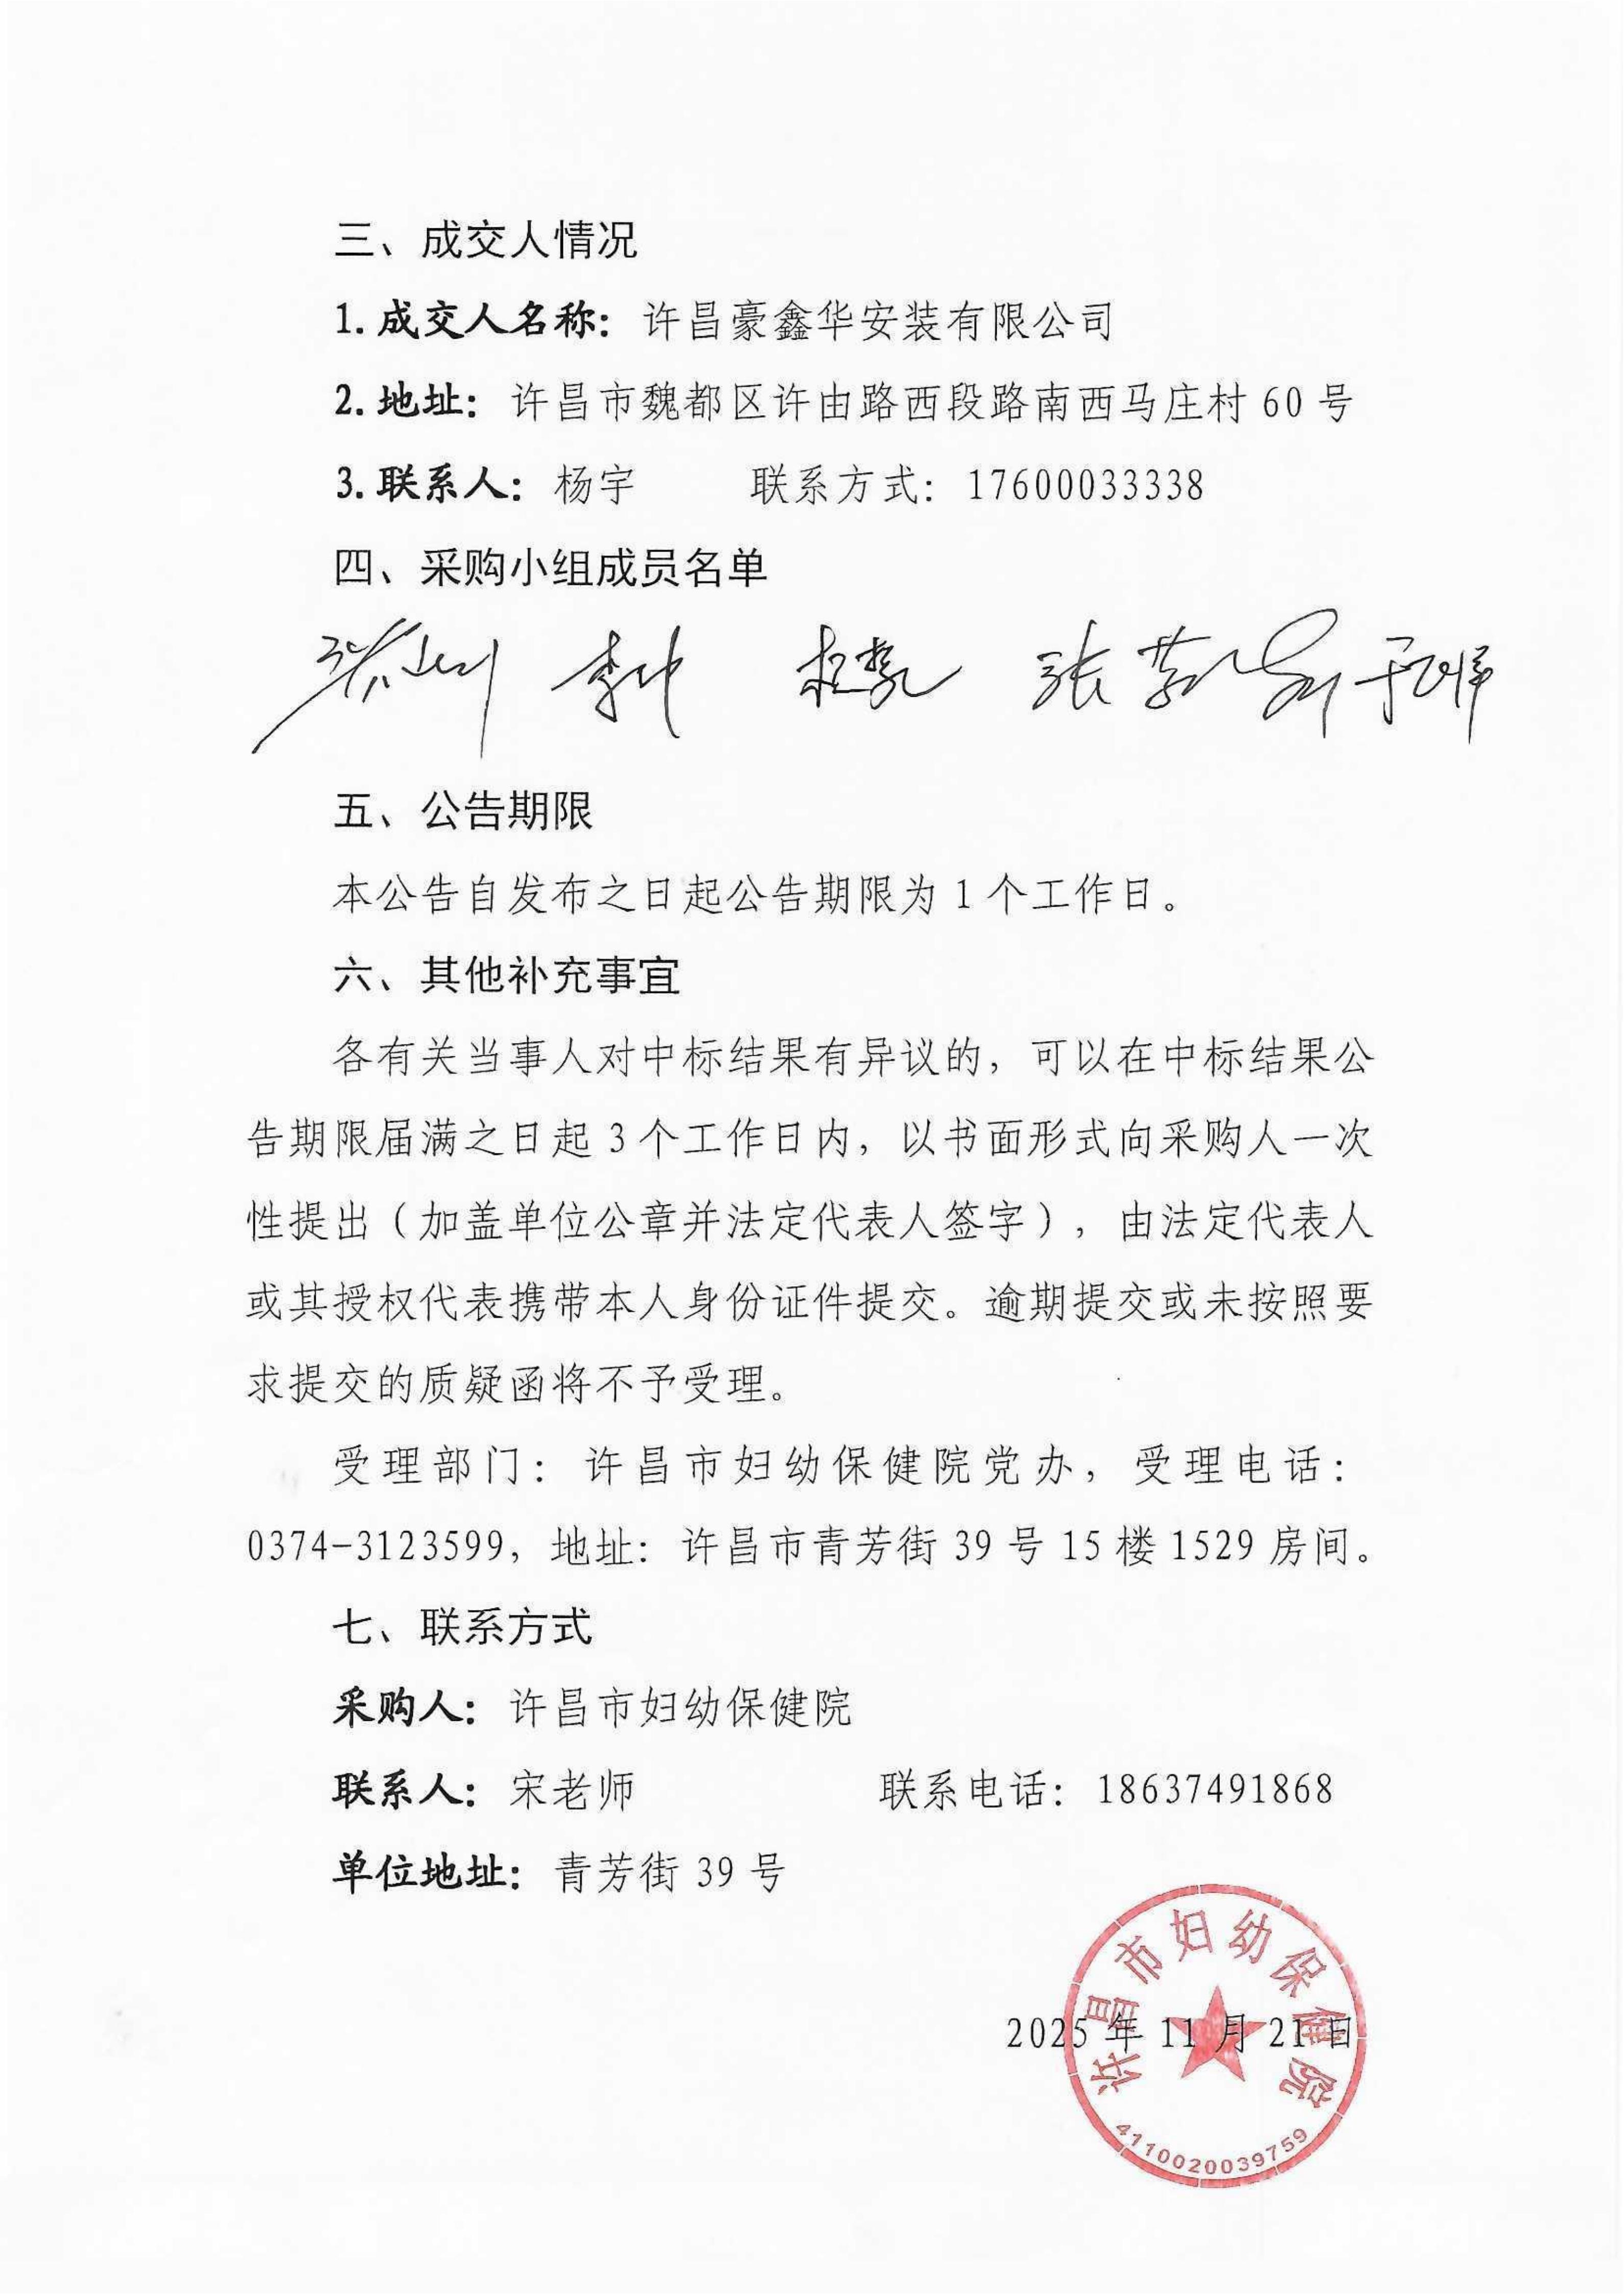 三、成交人情况
1.成交人名称：许昌豪鑫华安装有限公司
2.地址：许昌市魏都区许由路西段路南西马庄村 60 号
3.联系人：杨宇 联系方式：17600033338
四、采购小组成员名单
张
五、公告期限
本公告自发布之日起公告期限为 1 个工作日。
六、其他补充事宜
各有关当事人对中标结果有异议的，可以在中标结果公
告期限届满之日起 3 个工作日内，以书面形式向采购人一次
性提出（加盖单位公章并法定代表人签字），由法定代表人
或其授权代表携带本人身份证件提交。逾期提交或未按照要
求提交的质疑函将不予受理。
受理部门：许昌市妇幼保健院党办，受理电话：
0374-3123599，地址：许昌市青芳街 39 号 15 楼 1529 房间。
七、联系方式
采购人：许昌市妇幼保健院
联系人：宋老师 联系电话：18637491868
单位地址：青芳街 39 号
2025 年 11 月 21 日
许昌市妇幼保健院
4110020039759